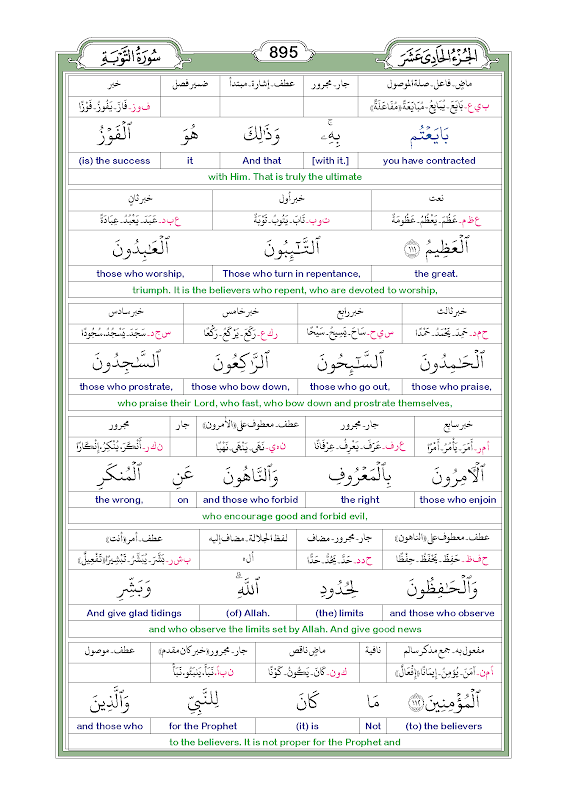 سُورَةُ التَّوْبَةِ 895 الجُزْءُ الحَادِي عَشَرَ
ماضٍ ـ فاعل ـ صلة الموصول جار ـ مجرور عطف ـ إشارة ـ مبتدأ ضمير فصل خبر
ب ي ع ـ بَايَعَ ـ يُبَايِعُ ـ مُبَايَعَةً «مُفَاعَلَةٌ» ف و ز ـ فَازَ ـ يَفُوزُ ـ فَوْزًا
بَايَعْتُم بِهِۦۚ وَذَٰلِكَ هُوَ ٱلْفَوْزُ
(is) the success it And that [with it.] you have contracted
with Him. That is truly the ultimate
نعت خبر أول خبر ثانٍ
ع ظ م ـ عَظُمَ ـ يَعْظُمُ ـ عَظُومَةً ت و ب ـ تَابَ ـ يَتُوبُ ـ تَوْبَةً ع ب د ـ عَبَدَ ـ يَعْبُدُ ـ عِبَادَةً
ٱلْعَظِيمُ ١١١ ٱلتَّـٰٓئِبُونَ ٱلْعَـٰبِدُونَ
those who worship, Those who turn in repentance, the great.
triumph. It is the believers who repent, who are devoted to worship,
خبر ثالث خبر رابع خبر خامس خبر سادس
ح م د ـ حَمِدَ ـ يَحْمَدُ ـ حَمْدًا س ي ح ـ سَاحَ ـ يَسِيحُ ـ سَيْحًا ر ك ع ـ رَكَعَ ـ يَرْكَعُ ـ رَكْعًا س ج د ـ سَجَدَ ـ يَسْجُدُ ـ سُجُودًا
ٱلْحَـٰمِدُونَ ٱلسَّـٰٓئِحُونَ ٱلرَّٰكِعُونَ ٱلسَّـٰجِدُونَ
those who prostrate, those who bow down, those who go out, those who praise,
who praise their Lord, who fast, who bow down and prostrate themselves,
خبر سابع جار ـ مجرور عطف ـ معطوف على «الآمرون» جار مجرور
أ م ر ـ أَمَرَ ـ يَأْمُرُ ـ أَمْرًا ع ر ف ـ عَرَفَ ـ يَعْرِفُ ـ عِرْفَانًا ن ه ي ـ نَهَى ـ يَنْهَى ـ نَهْيًا ن ك ر ـ أَنْكَرَ ـ يُنْكِرُ ـ إِنْكَارًا
ٱلْـَٔامِرُونَ بِٱلْمَعْرُوفِ وَٱلنَّاهُونَ عَنِ ٱلْمُنكَرِ
the wrong, on and those who forbid the right those who enjoin
who encourage good and forbid evil,
عطف ـ معطوف على «الناهون» جار ـ مجرور ـ مضاف لفظ الجلالة ـ مضاف إليه عطف ـ أمر «أنت»
ح ف ظ ـ حَفِظَ ـ يَحْفَظُ ـ حِفْظًا ح د د ـ حَدَّ ـ يَحُدُّ ـ حَدًّا أ ل ه ب ش ر ـ بَشَّرَ ـ يُبَشِّرُ ـ تَبْشِيرًا «تَفْعِيلٌ»
وَٱلْحَـٰفِظُونَ لِحُدُودِ ٱللَّهِۗ وَبَشِّرِ
And give glad tidings (of) Allah. (the) limits and those who observe
and who observe the limits set by Allah. And give good news
مفعول به ـ جمع مذكر سالم نافية ماضٍ ناقص جار ـ مجرور «خبر كان مقدم» عطف ـ موصول
أ م ن ـ آمَنَ ـ يُؤْمِنُ ـ إِيمَانًا «إِفْعَالٌ» ك و ن ـ كَانَ ـ يَكُونُ ـ كَوْنًا ن ب أ ـ نَبَأَ ـ يَنْبَئُو ـ نَبَأً
ٱلْمُؤْمِنِينَ ١١٢ مَا كَانَ لِلنَّبِىِّ وَٱلَّذِينَ
and those who for the Prophet (it) is Not (to) the believers
to the believers. It is not proper for the Prophet and